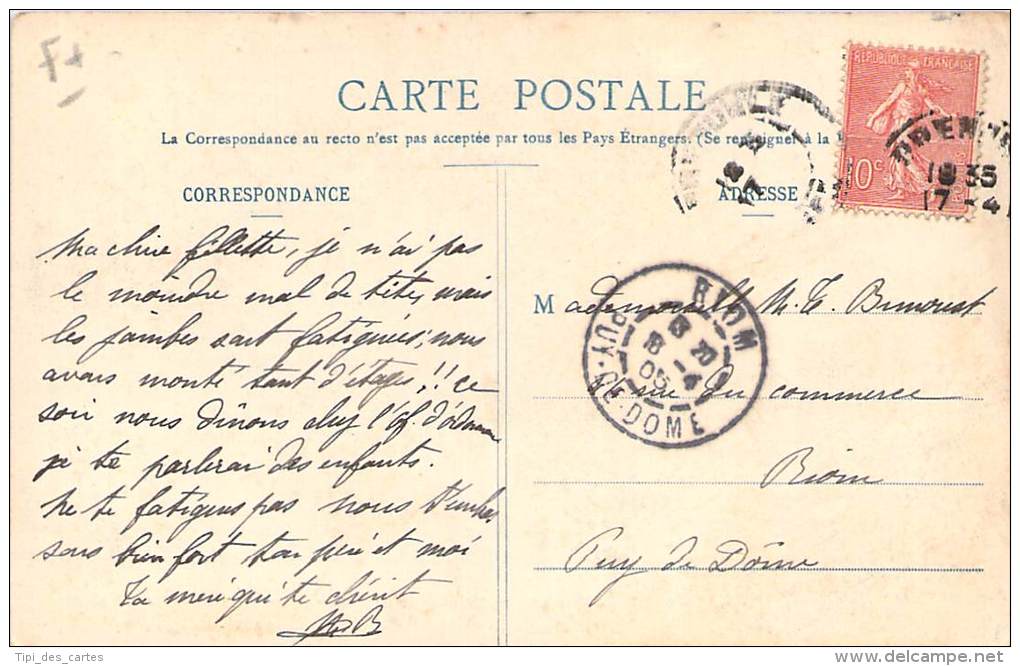 F+
CARTE POSTALE
La Correspondance au recto n'est pas acceptée par tous les Pays Étrangers. (Se renseigner à la
RÉPUBLIQUE FRANÇAISE
10c
18 35
17 -4
CORRESPONDANCE
ADRESSE
Ma chère fillette, je n'ai pas
le moindre mal de tête, mais
les jambes sont fatiguées, nous
avons monté tant d'étages!! ce
soir nous dînons chez l'Of. d'ordonn
je te parlerai des enfants.
Ne te fatigues pas nous t'embras
sons bien fort ton père et moi
Ta mère qui te chérit
Mademoiselle M. T.
rue du commerce
Riom
Puy de Dôme
RIOM
PUY-DE-DOME
18 -4
05
Tipi_des_cartes
delcampe.net